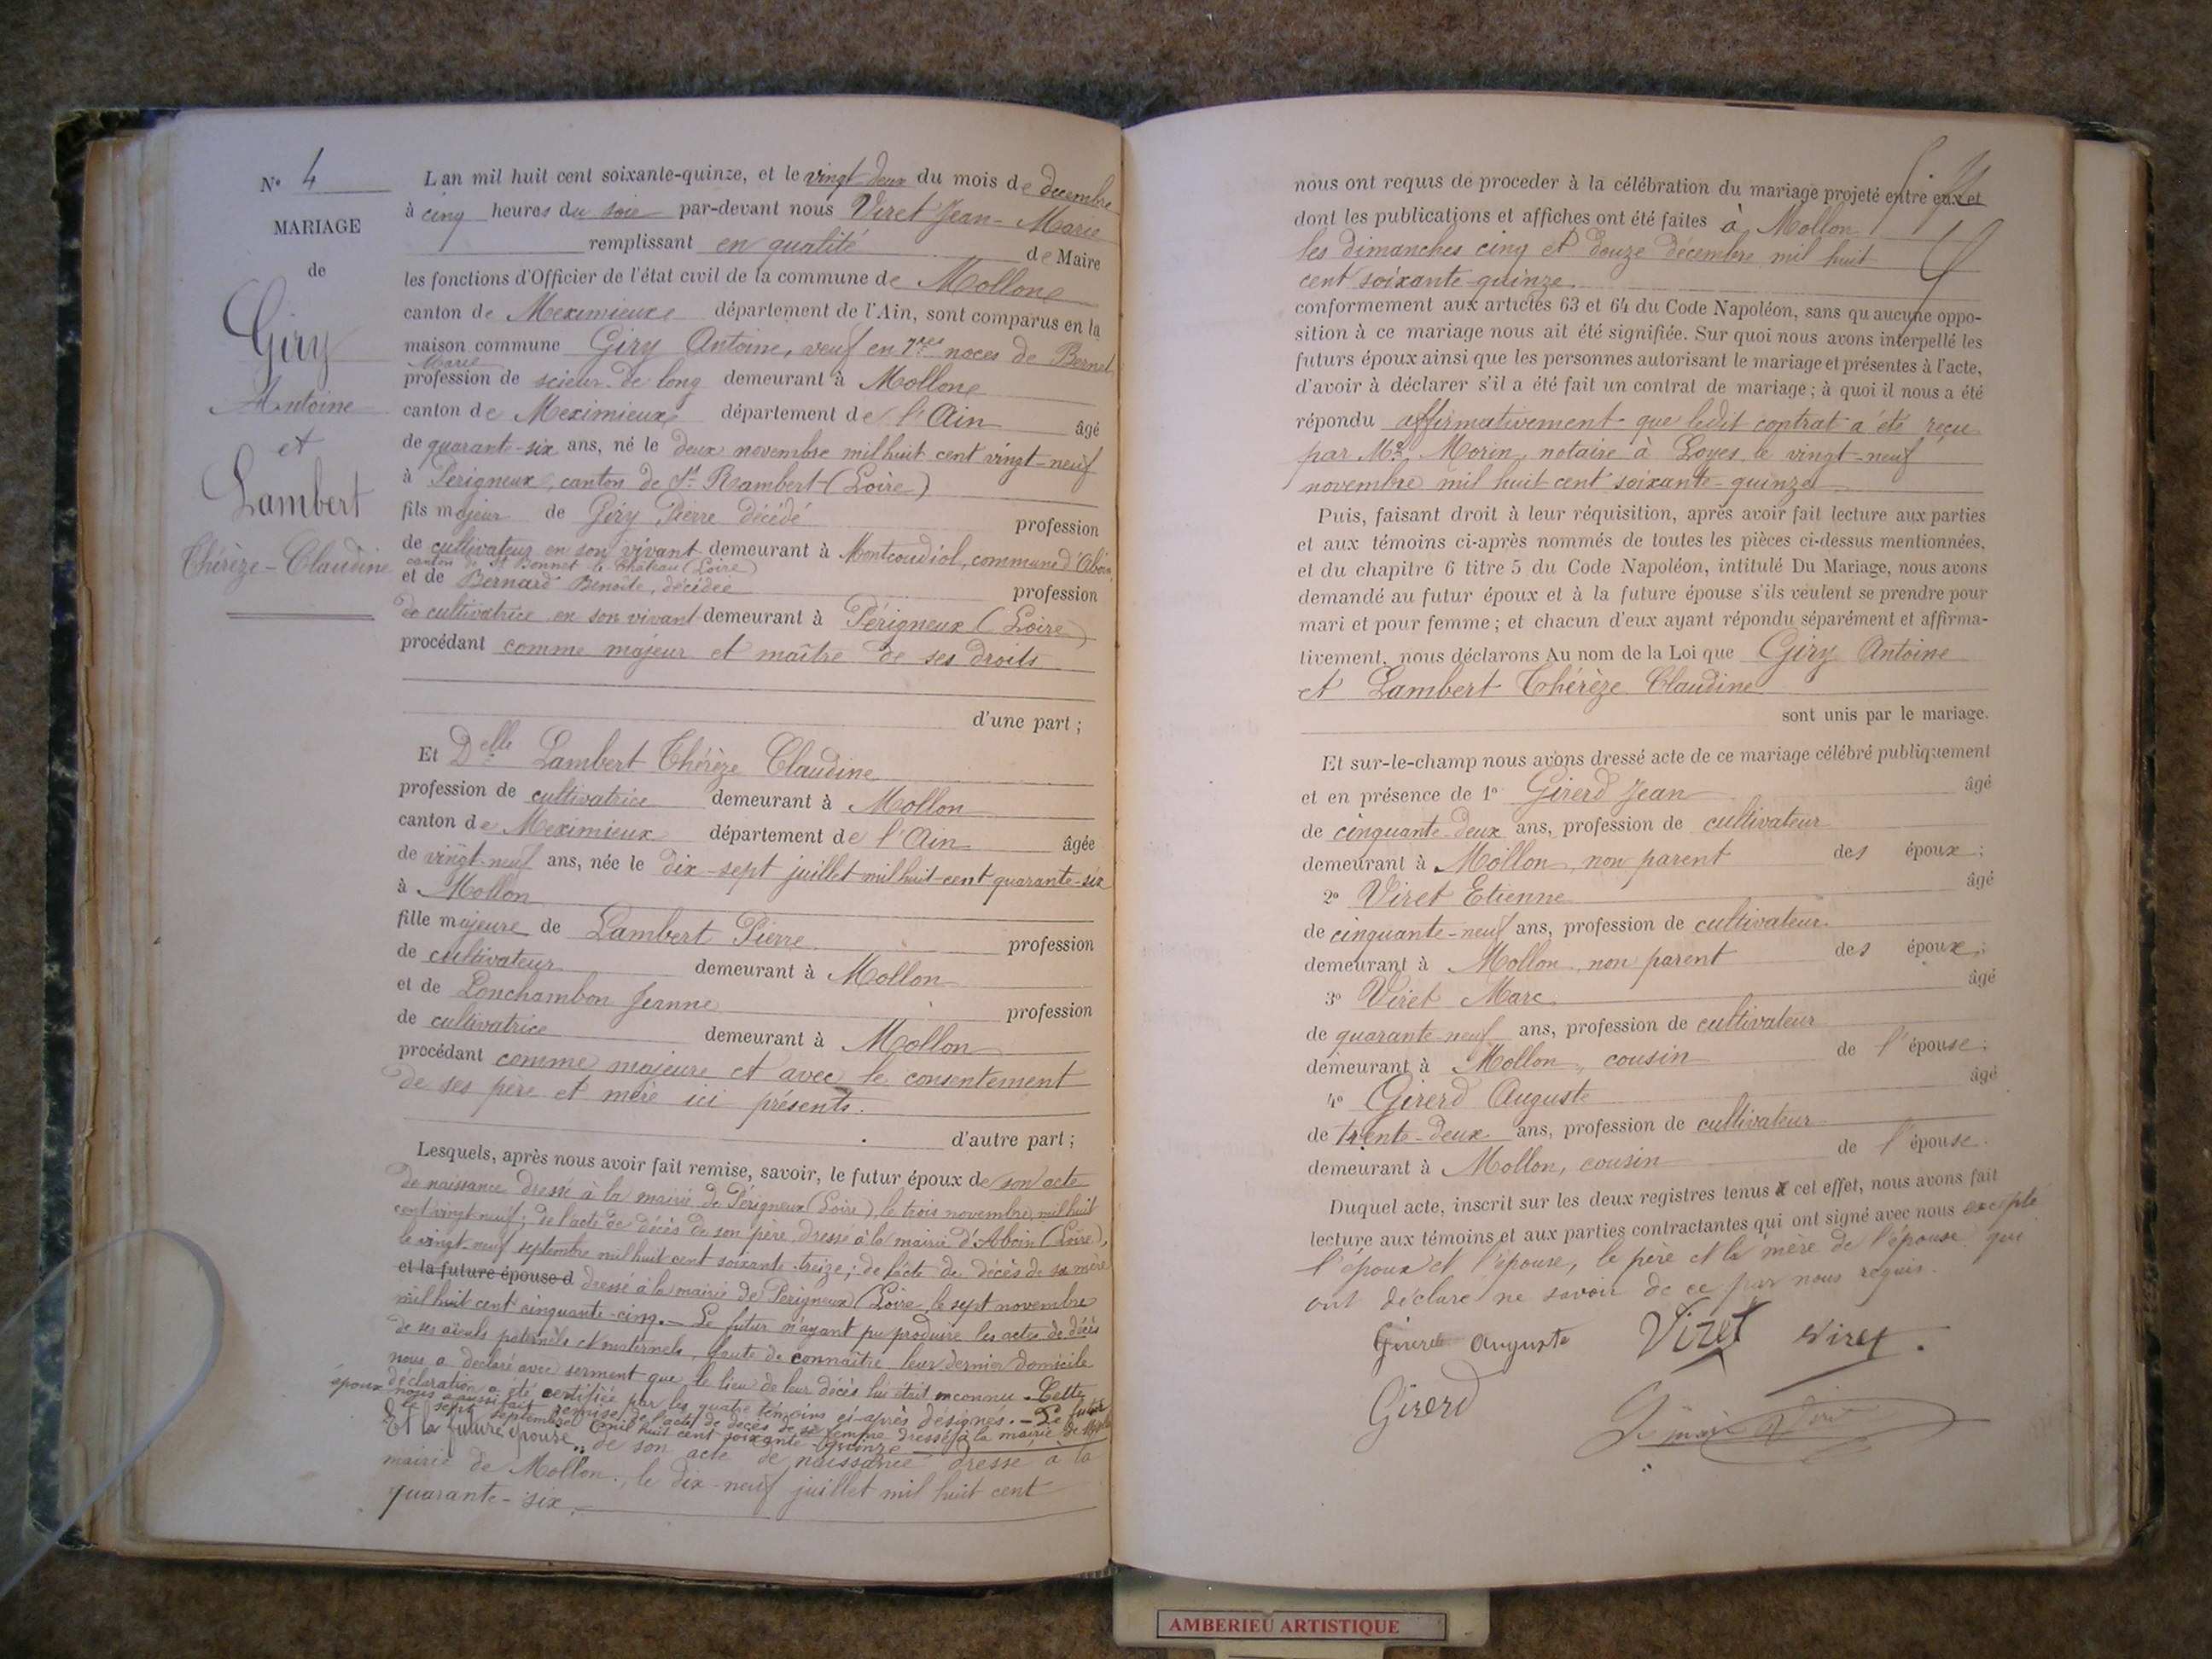 N° 4
MARIAGE
de
Giry
Antoine
et
Lambert
Thérèze-Claudine
L'an mil huit cent soixante-quinze, et le vingt deux du mois de decembre
à cinq heures du soir par-devant nous Viret Jean-Marie
remplissant en qualité de Maire
les fonctions d'Officier de l'état civil de la commune de Mollon
canton de Meximieux département de l'Ain, sont comparus en la
maison commune Giry Antoine, veuf en 1res noces de Bernet
Marie
profession de scieur de long demeurant à Mollon
canton de Meximieux département de l'Ain âgé
de quarante-six ans, né le deux novembre mil huit cent vingt-neuf
à Périgneux, canton de St Rambert (Loire)
fils majeur de Giry Pierre décédé profession
de cultivateur en son vivant demeurant à Montcoudiol, commune d'Aboin
canton de St Bonnet le Château (Loire)
et de Bernard Benoîte, décédée profession
de cultivatrice en son vivant demeurant à Périgneux (Loire)
procédant comme majeur et maître de ses droits
d'une part ;
Et Delle Lambert Thérèze Claudine
profession de cultivatrice demeurant à Mollon
canton de Meximieux département de l'Ain âgée
de vingt-neuf ans, née le dix-sept juillet mil huit cent quarante-six
à Mollon
fille majeure de Lambert Pierre profession
de cultivateur demeurant à Mollon
et de Lonchambon Jeanne profession
de cultivatrice demeurant à Mollon
procédant comme majeure et avec le consentement
de ses père et mère ici présents.
d'autre part ;
Lesquels, après nous avoir fait remise, savoir, le futur époux de son acte
de naissance dressé à la mairie de Périgneux (Loire), le trois novembre mil huit
cent vingt-neuf ; de l'acte de décès de son père dressé à la mairie d'Aboin (Loire),
le vingt-neuf septembre mil huit cent soixante-treize ; de l'acte de décès de sa mère
et la future épouse d dressé à la mairie de Périgneux (Loire, le sept novembre
mil huit cent cinquante-cinq. — Le futur n'ayant pu produire les actes de décès
de ses aïeuls paternels et maternels, faute de connaître leur dernier domicile
nous a déclaré avec serment que le lieu de leur décès lui était inconnu. Cette
déclaration a été certifiée par les quatre témoins ci-après désignés. — Le futur
époux nous a aussi fait remise de l'acte de décès de sa femme dressé à la mairie de
le sept septembre mil huit cent soixante quinze
Et la future épouse, de son acte de naissance dressé à la
mairie de Mollon, le dix-neuf juillet mil huit cent
quarante-six.
nous ont requis de proceder à la célébration du mariage projeté entre eux et
dont les publications et affiches ont été faites à Mollon
les dimanches cinq et douze décembre mil huit
cent soixante-quinze.
conformement aux articles 63 et 64 du Code Napoléon, sans qu'aucune oppo-
sition à ce mariage nous ait été signifiée. Sur quoi nous avons interpellé les
futurs époux ainsi que les personnes autorisant le mariage et présentes à l'acte,
d'avoir à déclarer s'il a été fait un contrat de mariage ; à quoi il nous a été
répondu affirmativement que ledit contrat a été reçu
par Me Morin, notaire à Loyes, le vingt-neuf
novembre mil huit cent soixante-quinze
Puis, faisant droit à leur réquisition, après avoir fait lecture aux parties
et aux témoins ci-après nommés de toutes les pièces ci-dessus mentionnées,
et du chapitre 6 titre 5 du Code Napoléon, intitulé Du Mariage, nous avons
demandé au futur époux et à la future épouse s'ils veulent se prendre pour
mari et pour femme ; et chacun d'eux ayant répondu séparément et affirma-
tivement, nous déclarons Au nom de la Loi que Giry Antoine
et Lambert Thérèze Claudine
sont unis par le mariage.
Et sur-le-champ nous avons dressé acte de ce mariage célébré publiquement
et en présence de 1° Girerd Jean âgé
de cinquante-deux ans, profession de cultivateur
demeurant à Mollon, non parent des époux ;
2° Viret Etienne âgé
de cinquante-neuf ans, profession de cultivateur
demeurant à Mollon, non parent des époux ;
3° Viret Marc âgé
de quarante-neuf ans, profession de cultivateur
demeurant à Mollon, cousin de l'épouse ;
4° Girerd Auguste âgé
de trente-deux ans, profession de cultivateur
demeurant à Mollon, cousin de l'épouse.
Duquel acte, inscrit sur les deux registres tenus à cet effet, nous avons fait
lecture aux témoins et aux parties contractantes qui ont signé avec nous excepté
l'époux et l'épouse, le père et la mère de l'épouse qui
ont déclaré ne savoir de ce par nous requis.
Girerd Auguste Viret Viret.
Girerd
Le maire Viret
AMBERIEU ARTISTIQUE